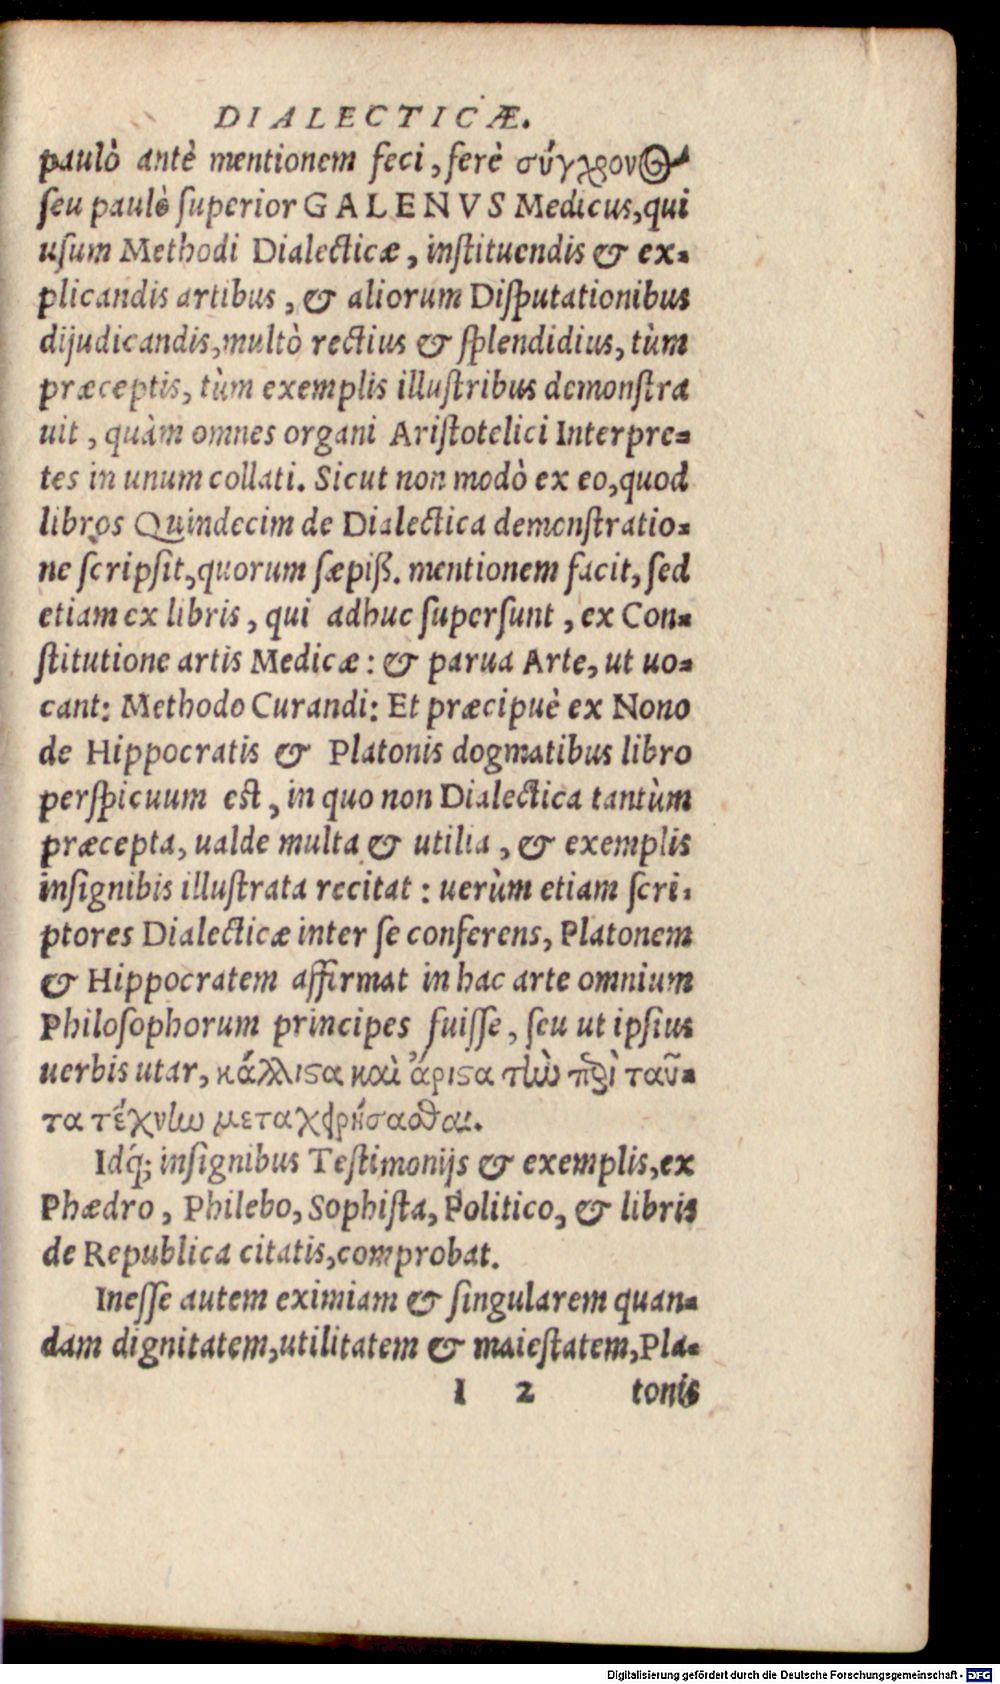 DIALECTICÆ.
paulò antè mentionem feci, ferè σύγχρονος
seu paulò superior GALENVS Medicus, qui
usum Methodi Dialecticæ, instituendis & ex-
plicandis artibus, & aliorum Disputationibus
dijudicandis, multò rectius & splendidius, tùm
præceptis, tùm exemplis illustribus demonstra
uit, quàm omnes organi Aristotelici Interpre-
tes in unum collati. Sicut non modò ex eo, quod
libros Quindecim de Dialectica demonstratio-
ne scripsit, quorum sæpiß. mentionem facit, sed
etiam ex libris, qui adhuc supersunt, ex Con-
stitutione artis Medicæ: & parua Arte, ut uo-
cant: Methodo Curandi: Et præcipuè ex Nono
de Hippocratis & Platonis dogmatibus libro
perspicuum est, in quo non Dialectica tantùm
præcepta, ualde multa & utilia, & exemplis
insignibis illustrata recitat: uerùm etiam scri-
ptores Dialecticæ inter se conferens, Platonem
& Hippocratem affirmat in hac arte omnium
Philosophorum principes fuisse, seu ut ipsius
uerbis utar, κάλλιϛα καὶ ἄριϛα τὴν περὶ ταῦ-
τα τέχνην μεταχειρήσασθαι.
Idq́; insignibus Testimonijs & exemplis, ex
Phædro, Philebo, Sophista, Politico, & libris
de Republica citatis, comprobat.
Inesse autem eximiam & singularem quan-
dam dignitatem, utilitatem & maiestatem, Pla-
1 2 tonis
Digitalisierung gefördert durch die Deutsche Forschungsgemeinschaft - DFG